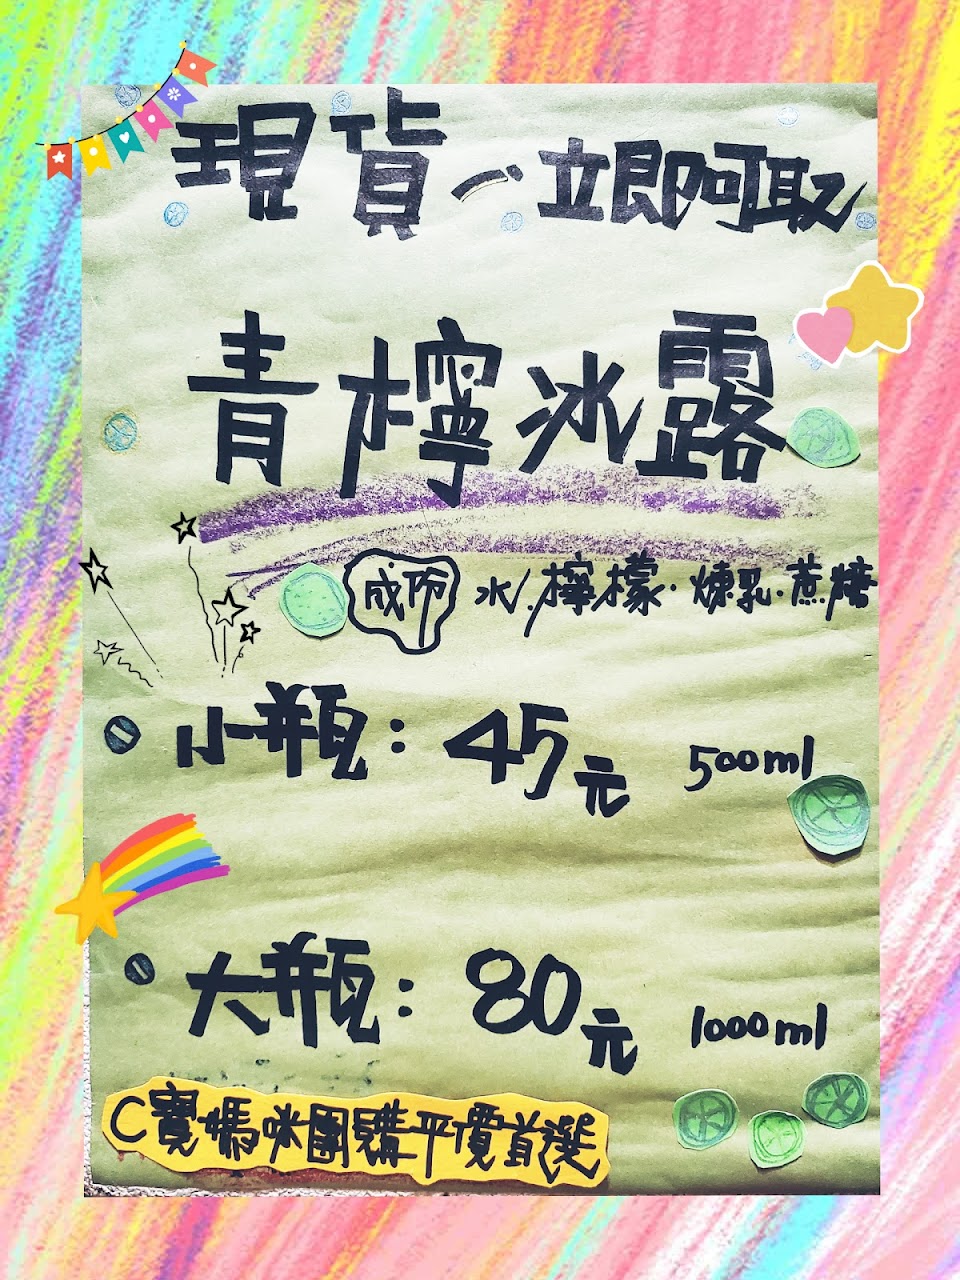 現貨~立即可取
青檸冰露
成份 水.檸檬.煉乳.蔗糖
小瓶:45元 500ml
大瓶:80元 1000ml
C寶媽咪團購平價首選